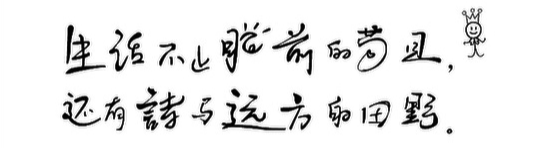 生活不止眼前的苟且，
还有詩与远方的田野。